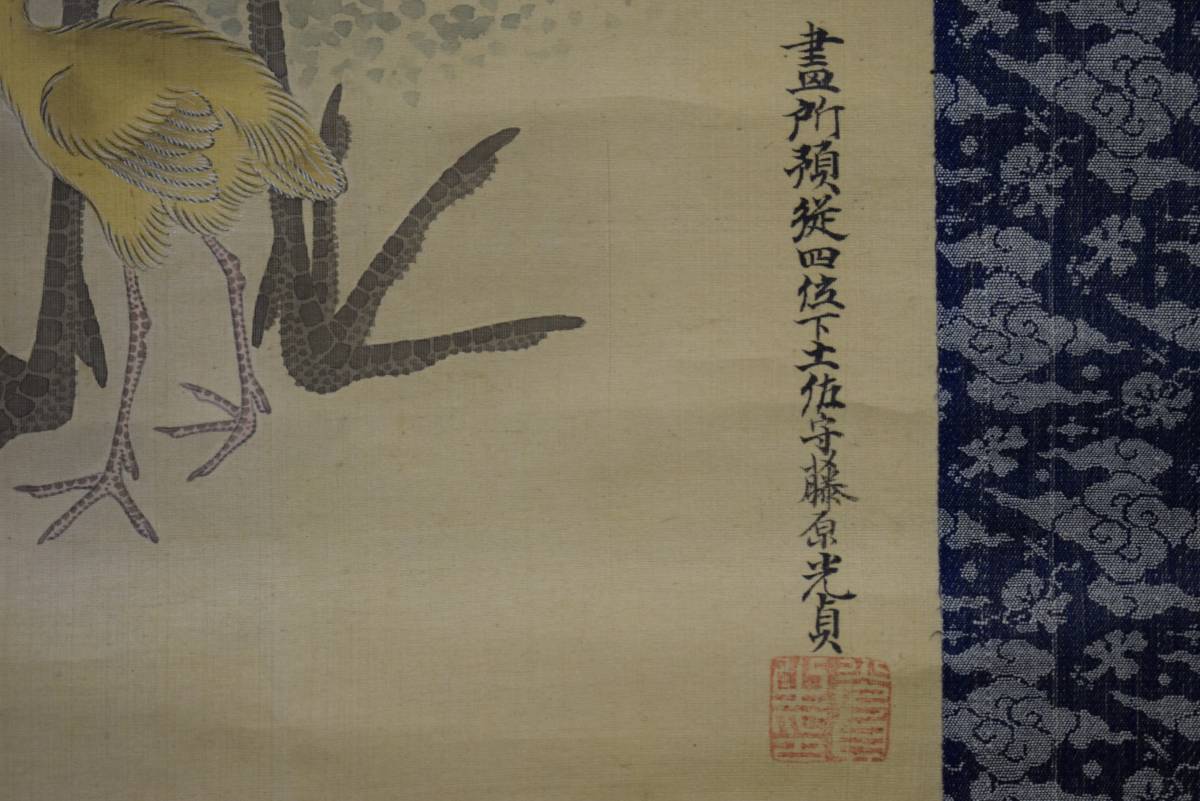 畫所預從四位下土佐守藤原光貞